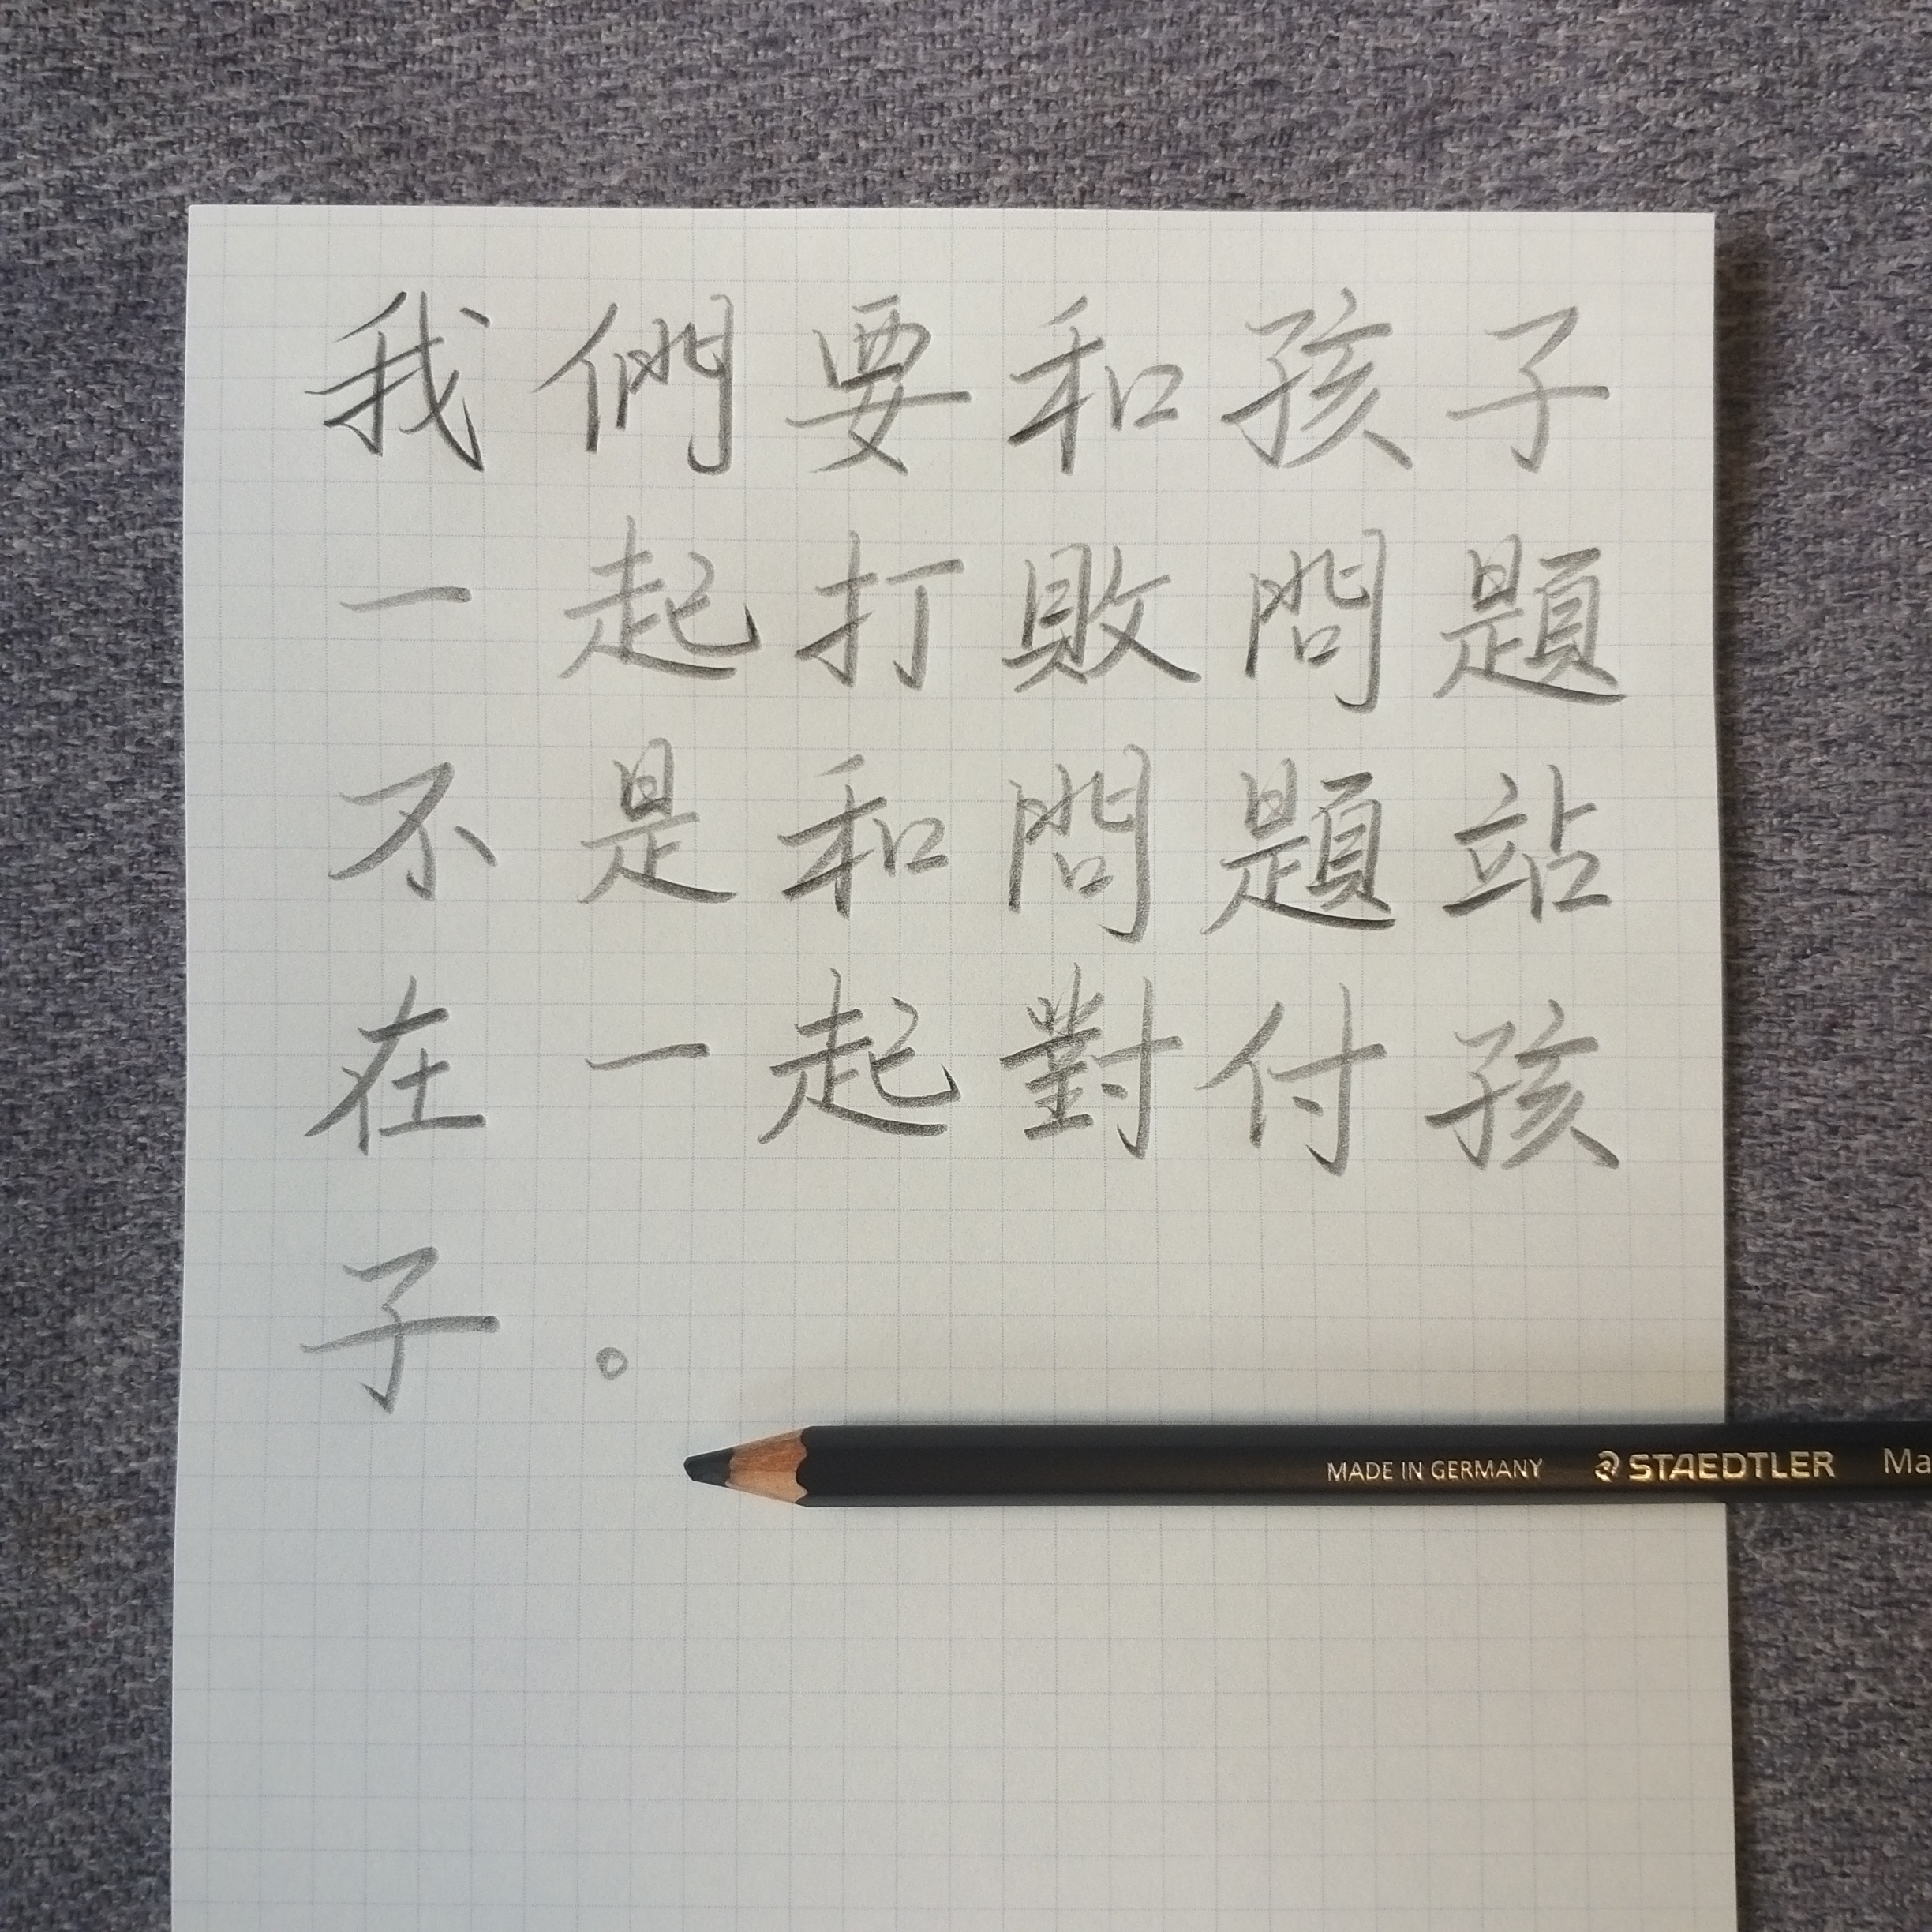 我們要和孩子
一起打敗問題
不是和問題站
在一起對付孩
子。
MADE IN GERMANY STAEDTLER Ma